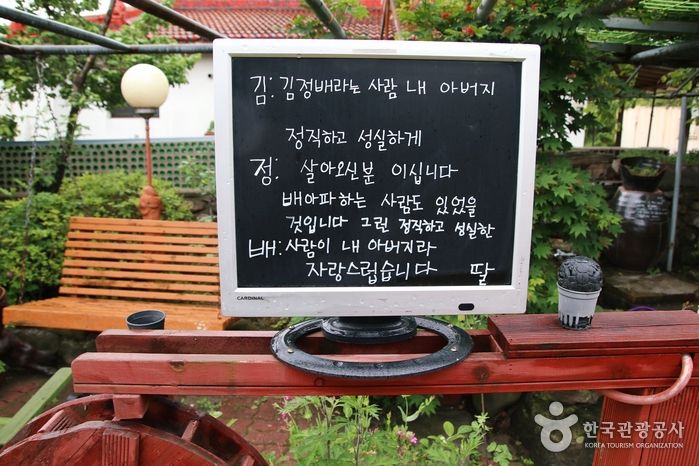 김: 김정배라는 사람 내 아버지
정직하고 성실하게
정: 살아오신분 이십니다
배아파하는 사람도 있었을
것입니다 그런 정직하고 성실한
배: 사람이 내 아버지라
자랑스럽습니다 딸
CARDINAL
한국관광공사
KOREA TOURISM ORGANIZATION